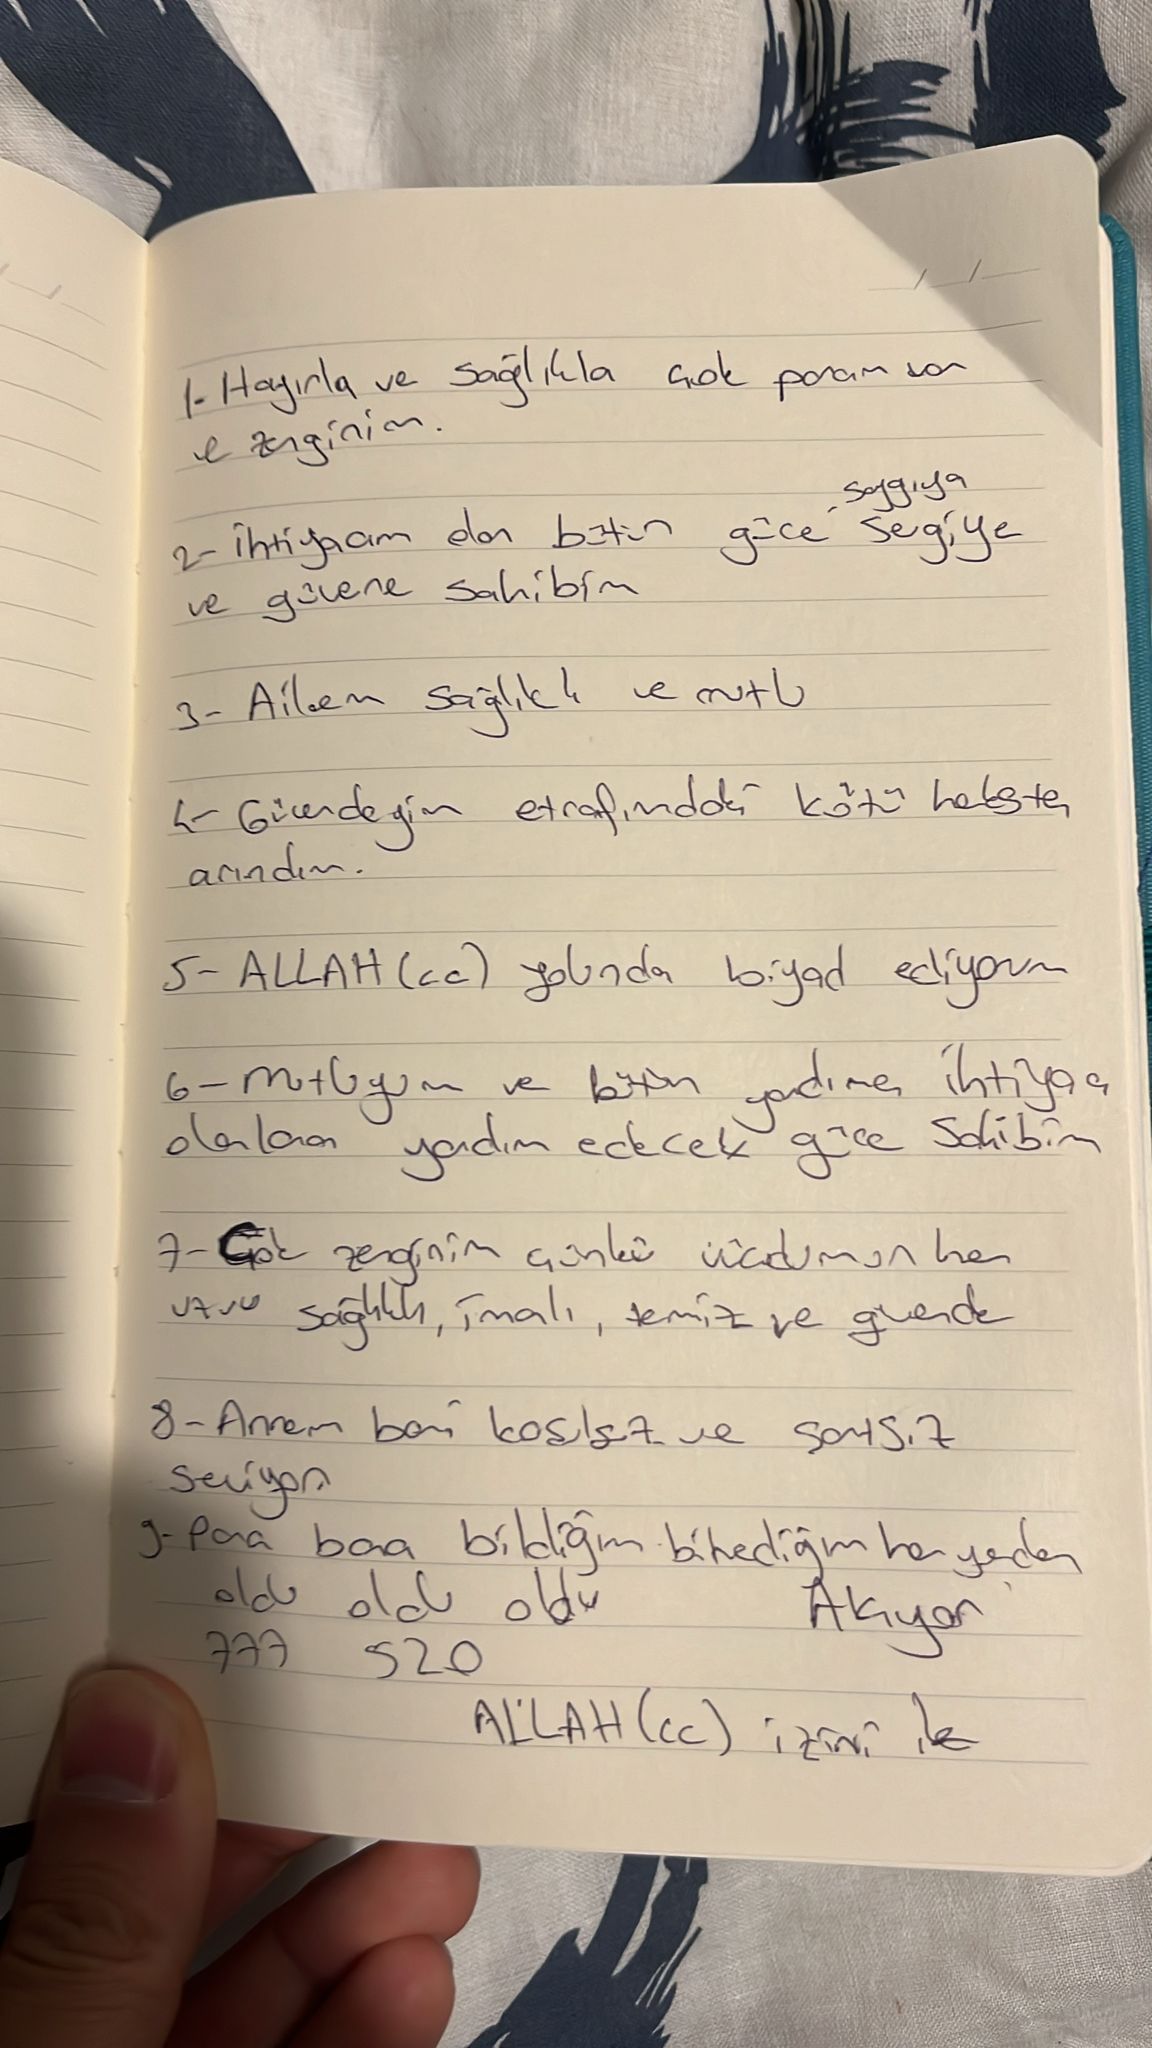 1- Hayırla ve sağlıkla çok param var
ve zenginim.
saygıya
2- ihtiyacım olan bütün güce sevgiye
ve güvene sahibim
3- Ailem sağlıklı ve mutlu
4- Güvendeyim etrafımdaki kötü
arındım.
5- ALLAH (cc) yolunda biyad ediyorum
6- mutluyum ve bütün yardıma ihtiyacı
olanlara yardım edecek güce Sahibim
7- Çok zenginim çünkü vücudumun her
uzvu sağlıklı, imalı, temiz ve güvende
8- Annem beni koşulsuz ve şartsız
seviyor
9- Para bana bildiğim bilmediğim her yerden
oldu oldu oldu Akıyor
777 520
ALLAH (cc) izini ile